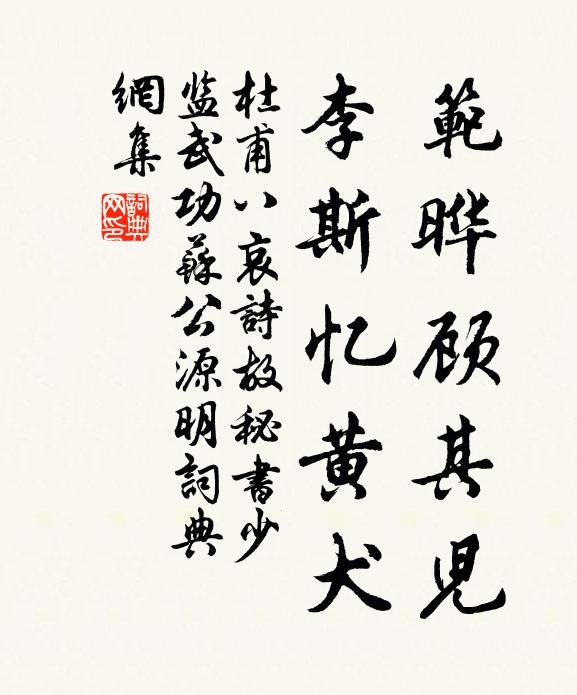 範晔顾其児
李斯忆黄犬
杜甫八哀詩故秘書少
监武功蘇公源明詞典
網集
詞典
网印